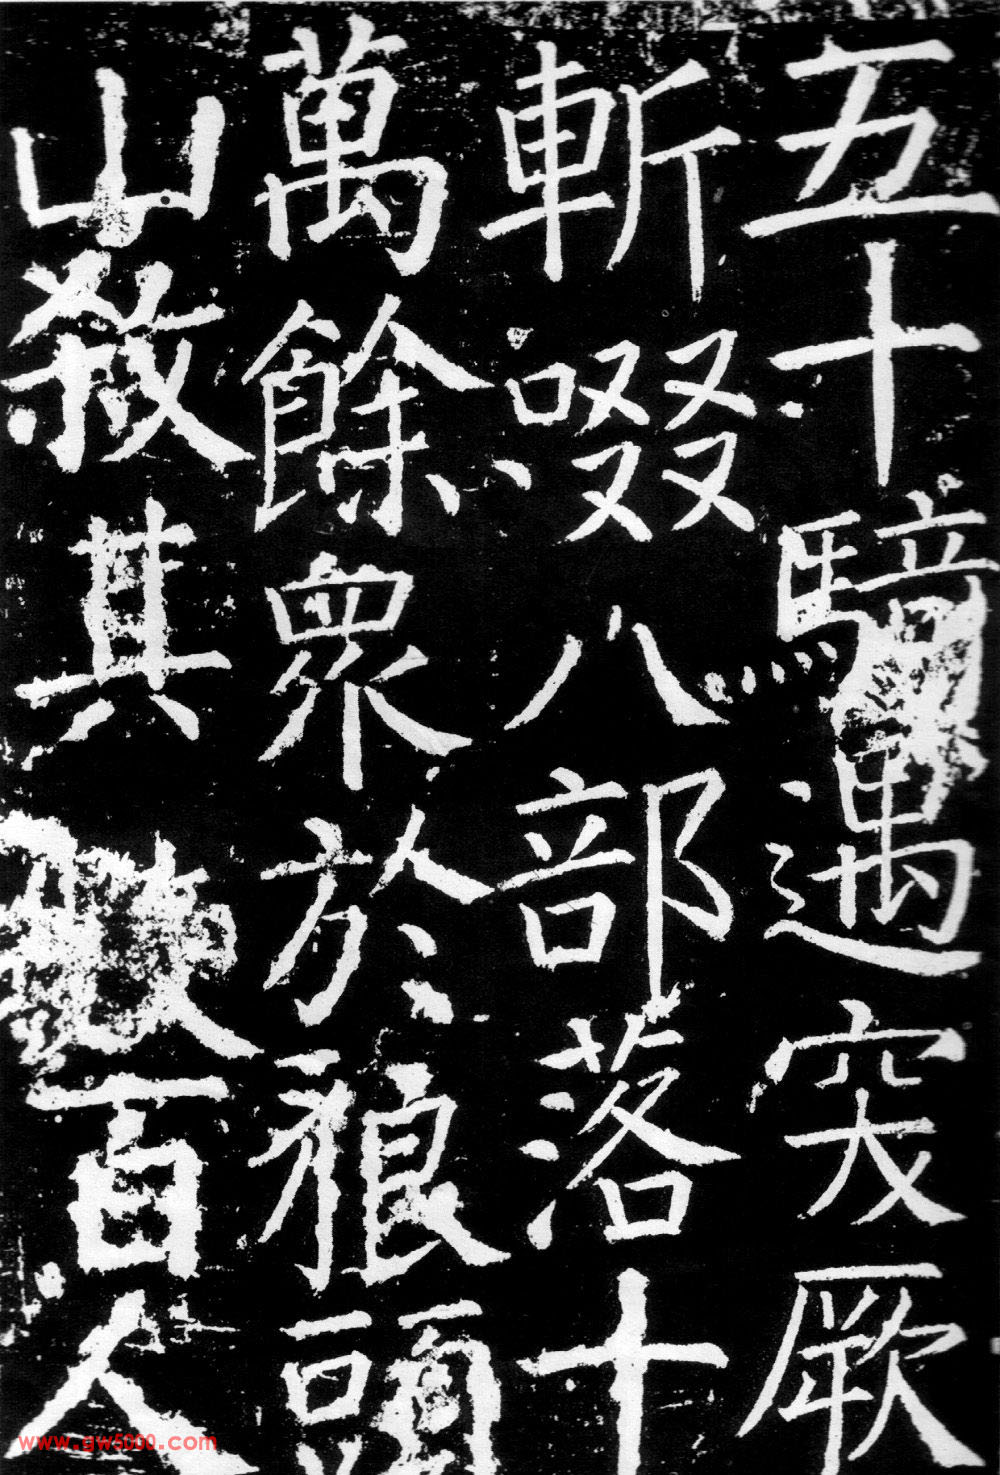 五十騎遇突厥
斬啜八部落十
萬餘眾於狼頭
山殺其數百人
www.gw5000.com